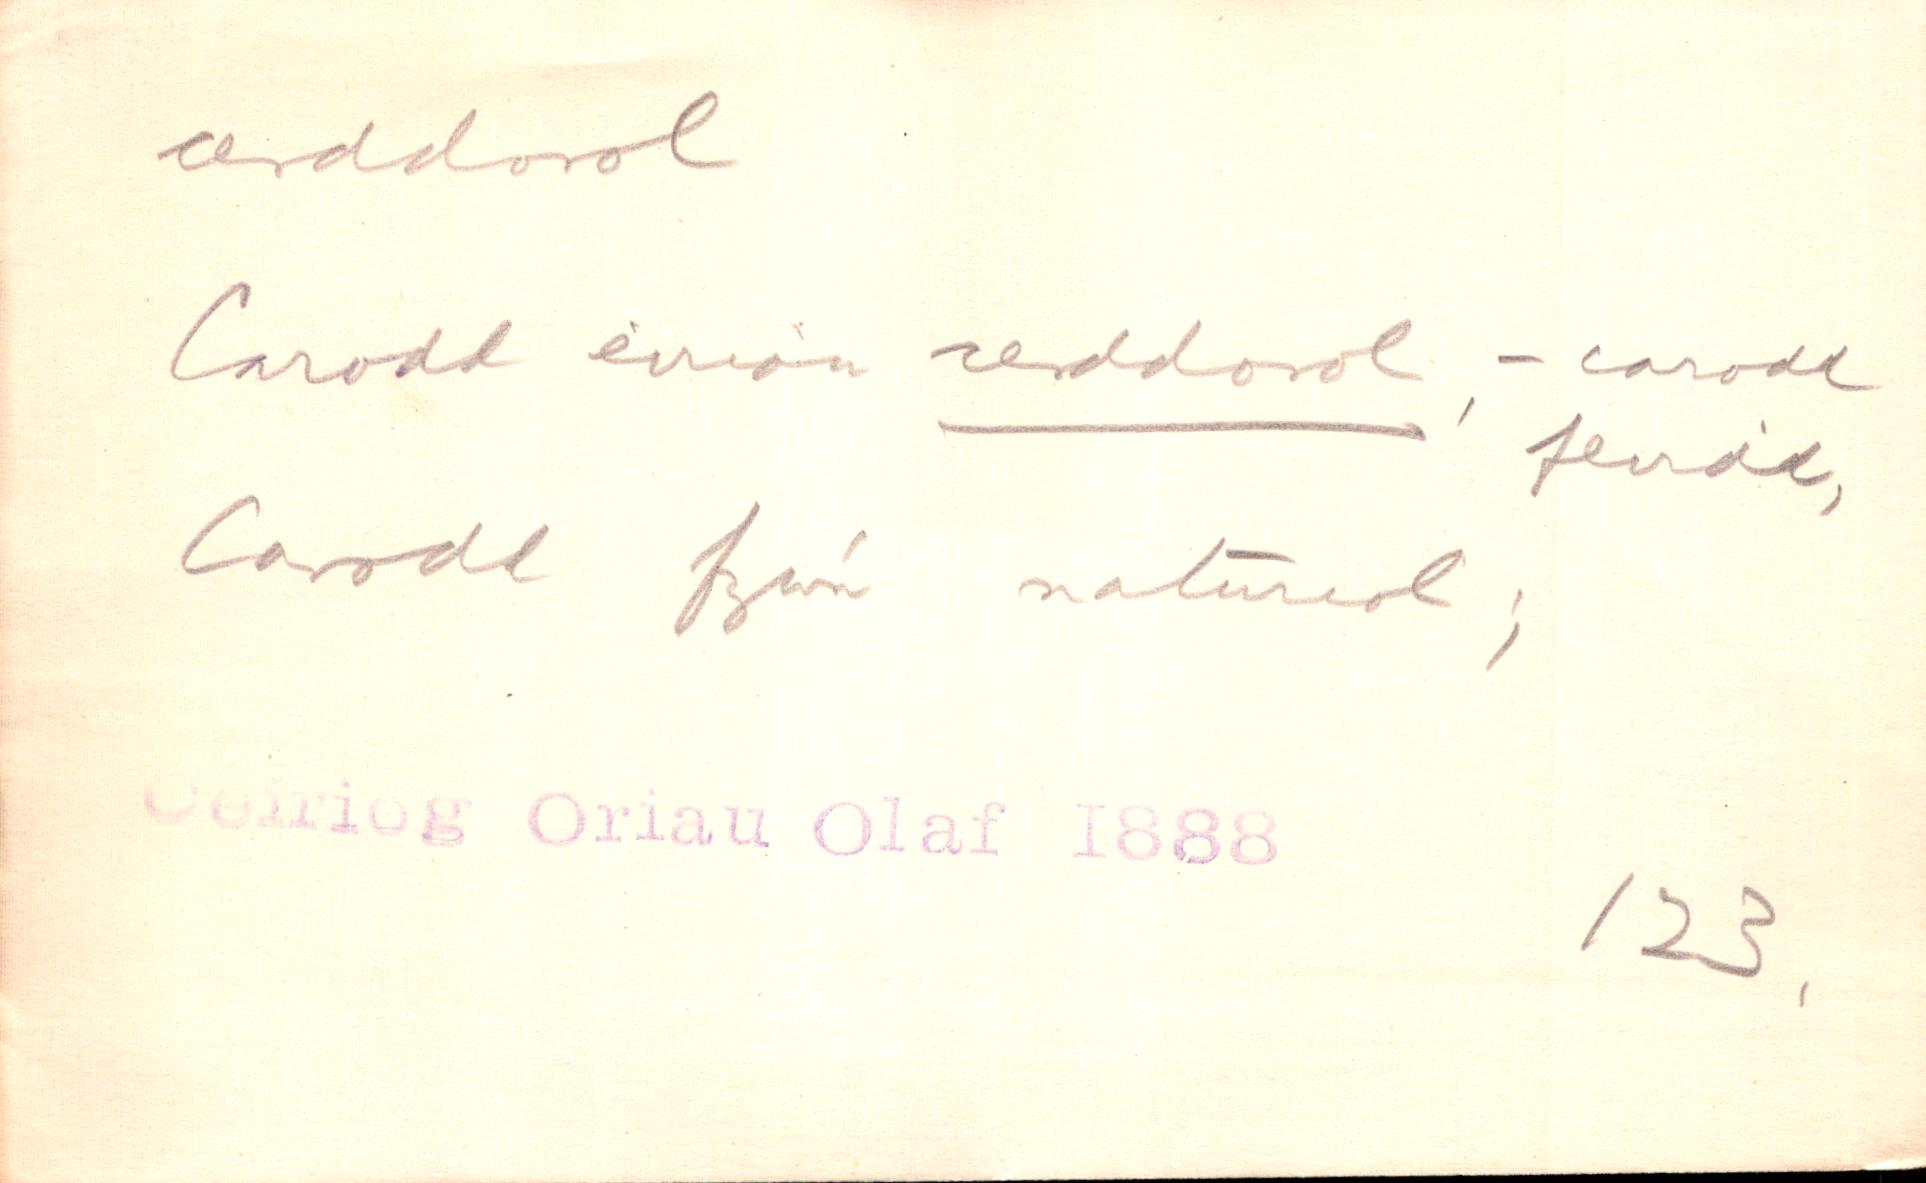 cerddorol
Carodd eirian cerddorol, - carodd
feirdd,
Carodd swn naturiol;
Ceiriog Oriau Olaf I888
123,